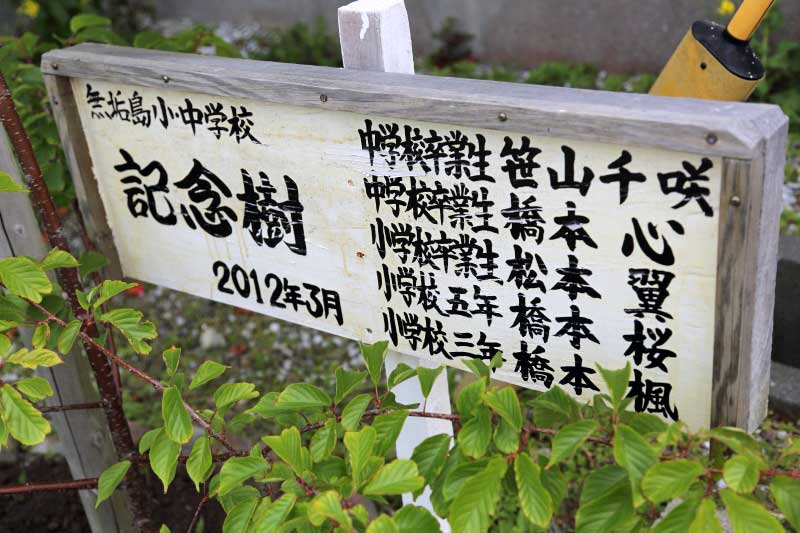 無垢島小・中学校
記念樹
2012年3月
中学校卒業生 笹山千咲
中学校卒業生 橋本 心
小学校卒業生 松本 翼
小学校五年 橋本 桜
小学校三年 橋本 楓